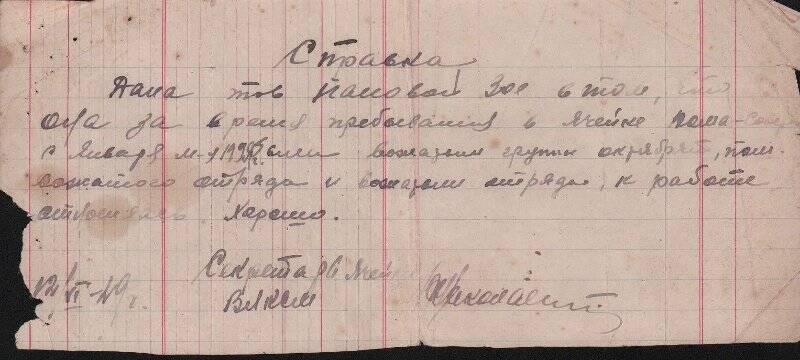 Справка
Дана тов Пановой Зое в том, что
она за время пребывания в ячейке
с Января м-ца вожатым групп октябрят, пом.
вожатого отряда и вожатым отряда, к работе
относилась Харашо.
Секретарь Ячейки
12/VI-29 г. ВЛКСМ